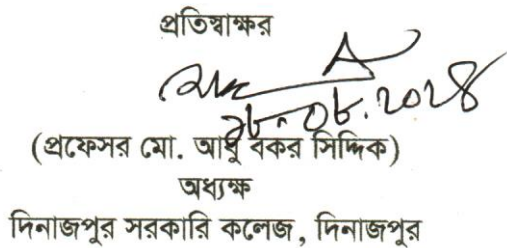 প্রতিস্বাক্ষর
০৮.২০২৪
(প্রফেসর মো. আবু বকর সিদ্দিক)
অধ্যক্ষ
দিনাজপুর সরকারি কলেজ, দিনাজপুর